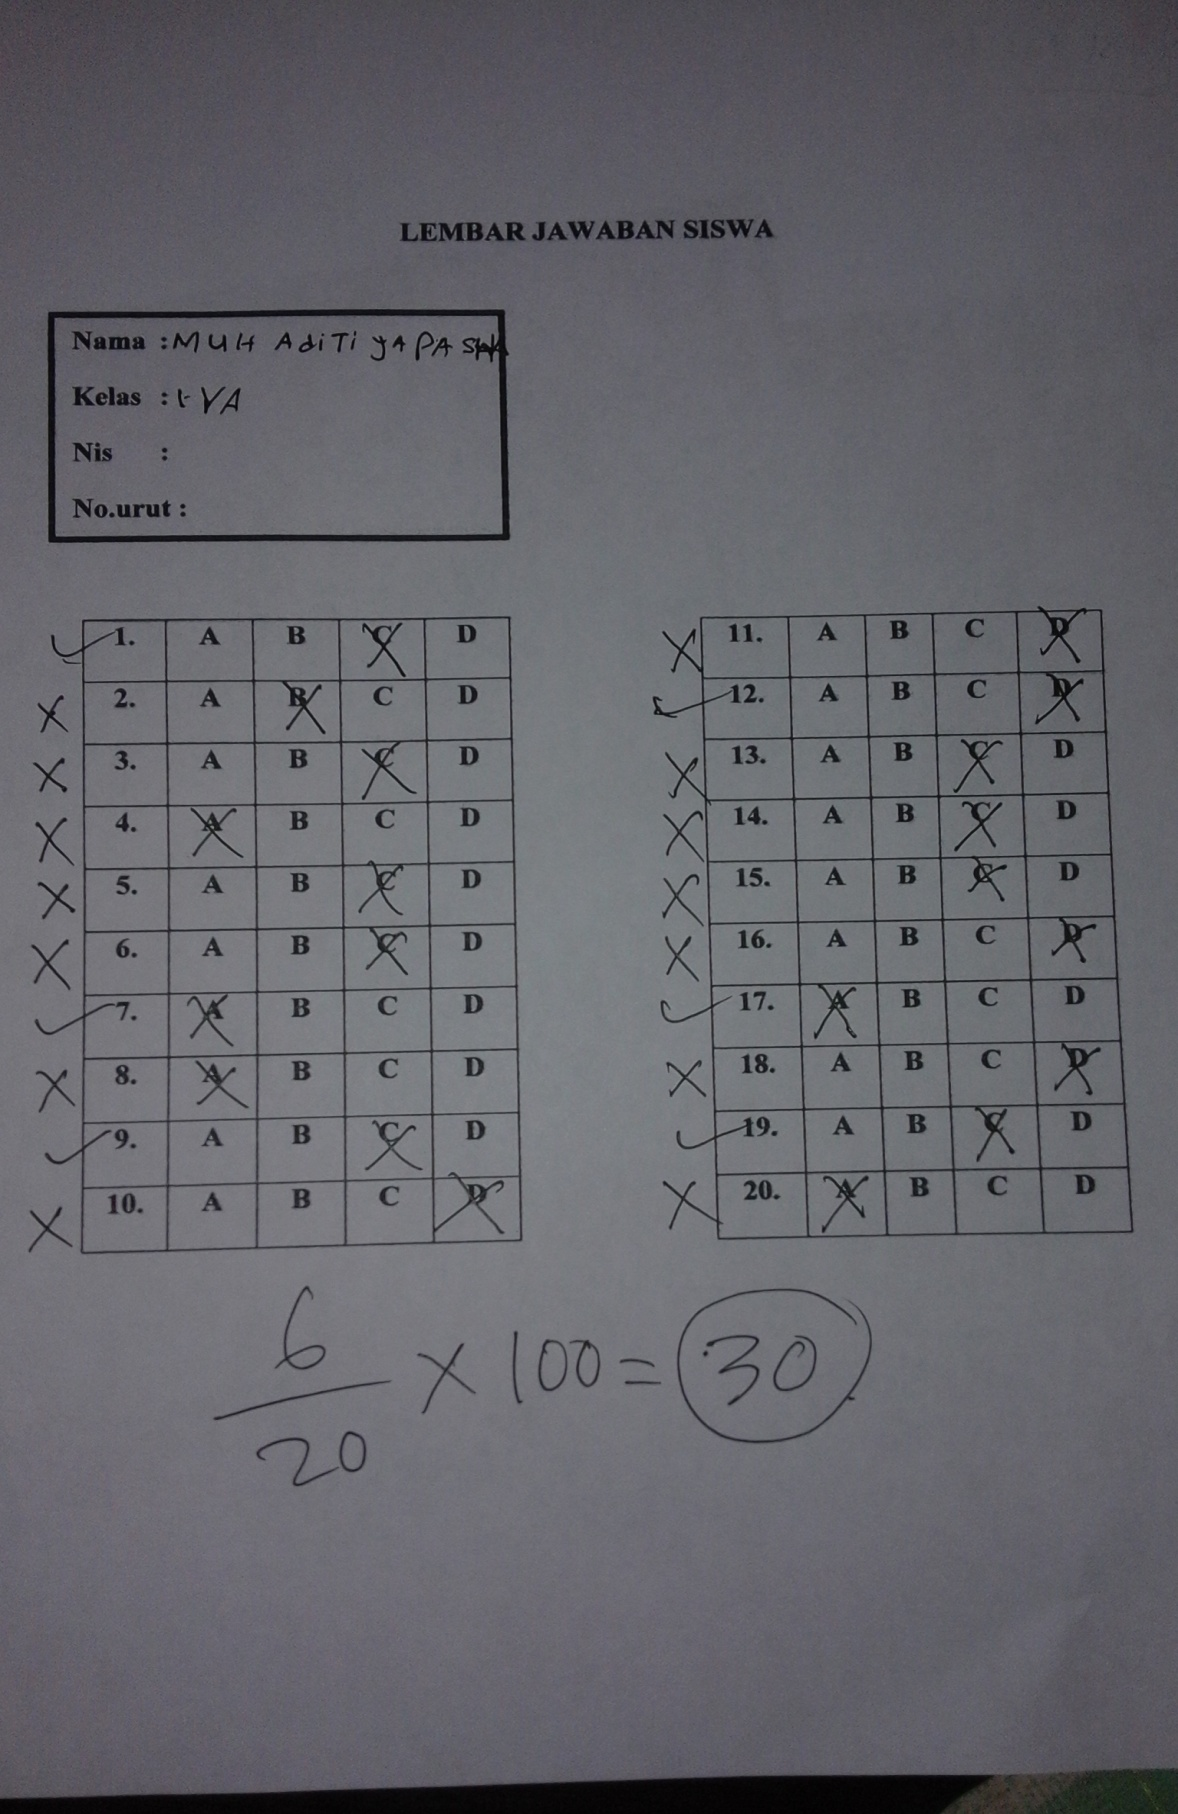 LEMBAR JAWABAN SISWA
Nama : MUH ADiTiyA PASHA
Kelas : VA
Nis :
No.urut :
1. A B C D
2. A B C D
3. A B C D
4. A B C D
5. A B C D
6. A B C D
7. A B C D
8. A B C D
9. A B C D
10. A B C D
11. A B C D
12. A B C D
13. A B C D
14. A B C D
15. A B C D
16. A B C D
17. A B C D
18. A B C D
19. A B C D
20. A B C D
6
20
× 100 = 30